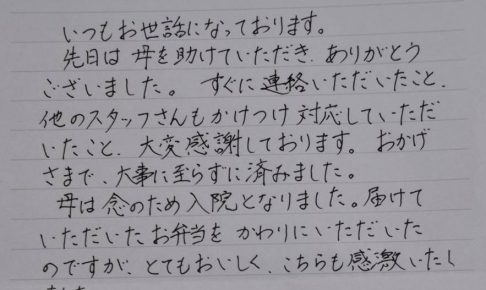 いつもお世話になっております。
先日は母を助けていただき、ありがとう
ございました。すぐに連絡いただいたこと、
他のスタッフさんもかけつけ対応していただ
いたこと、大変感謝しております。おかげ
さまで、大事に至らずに済みました。
母は念のため入院となりました。届けて
いただいたお弁当をかわりにいただいた
のですが、とてもおいしく、こちらも感激いたし